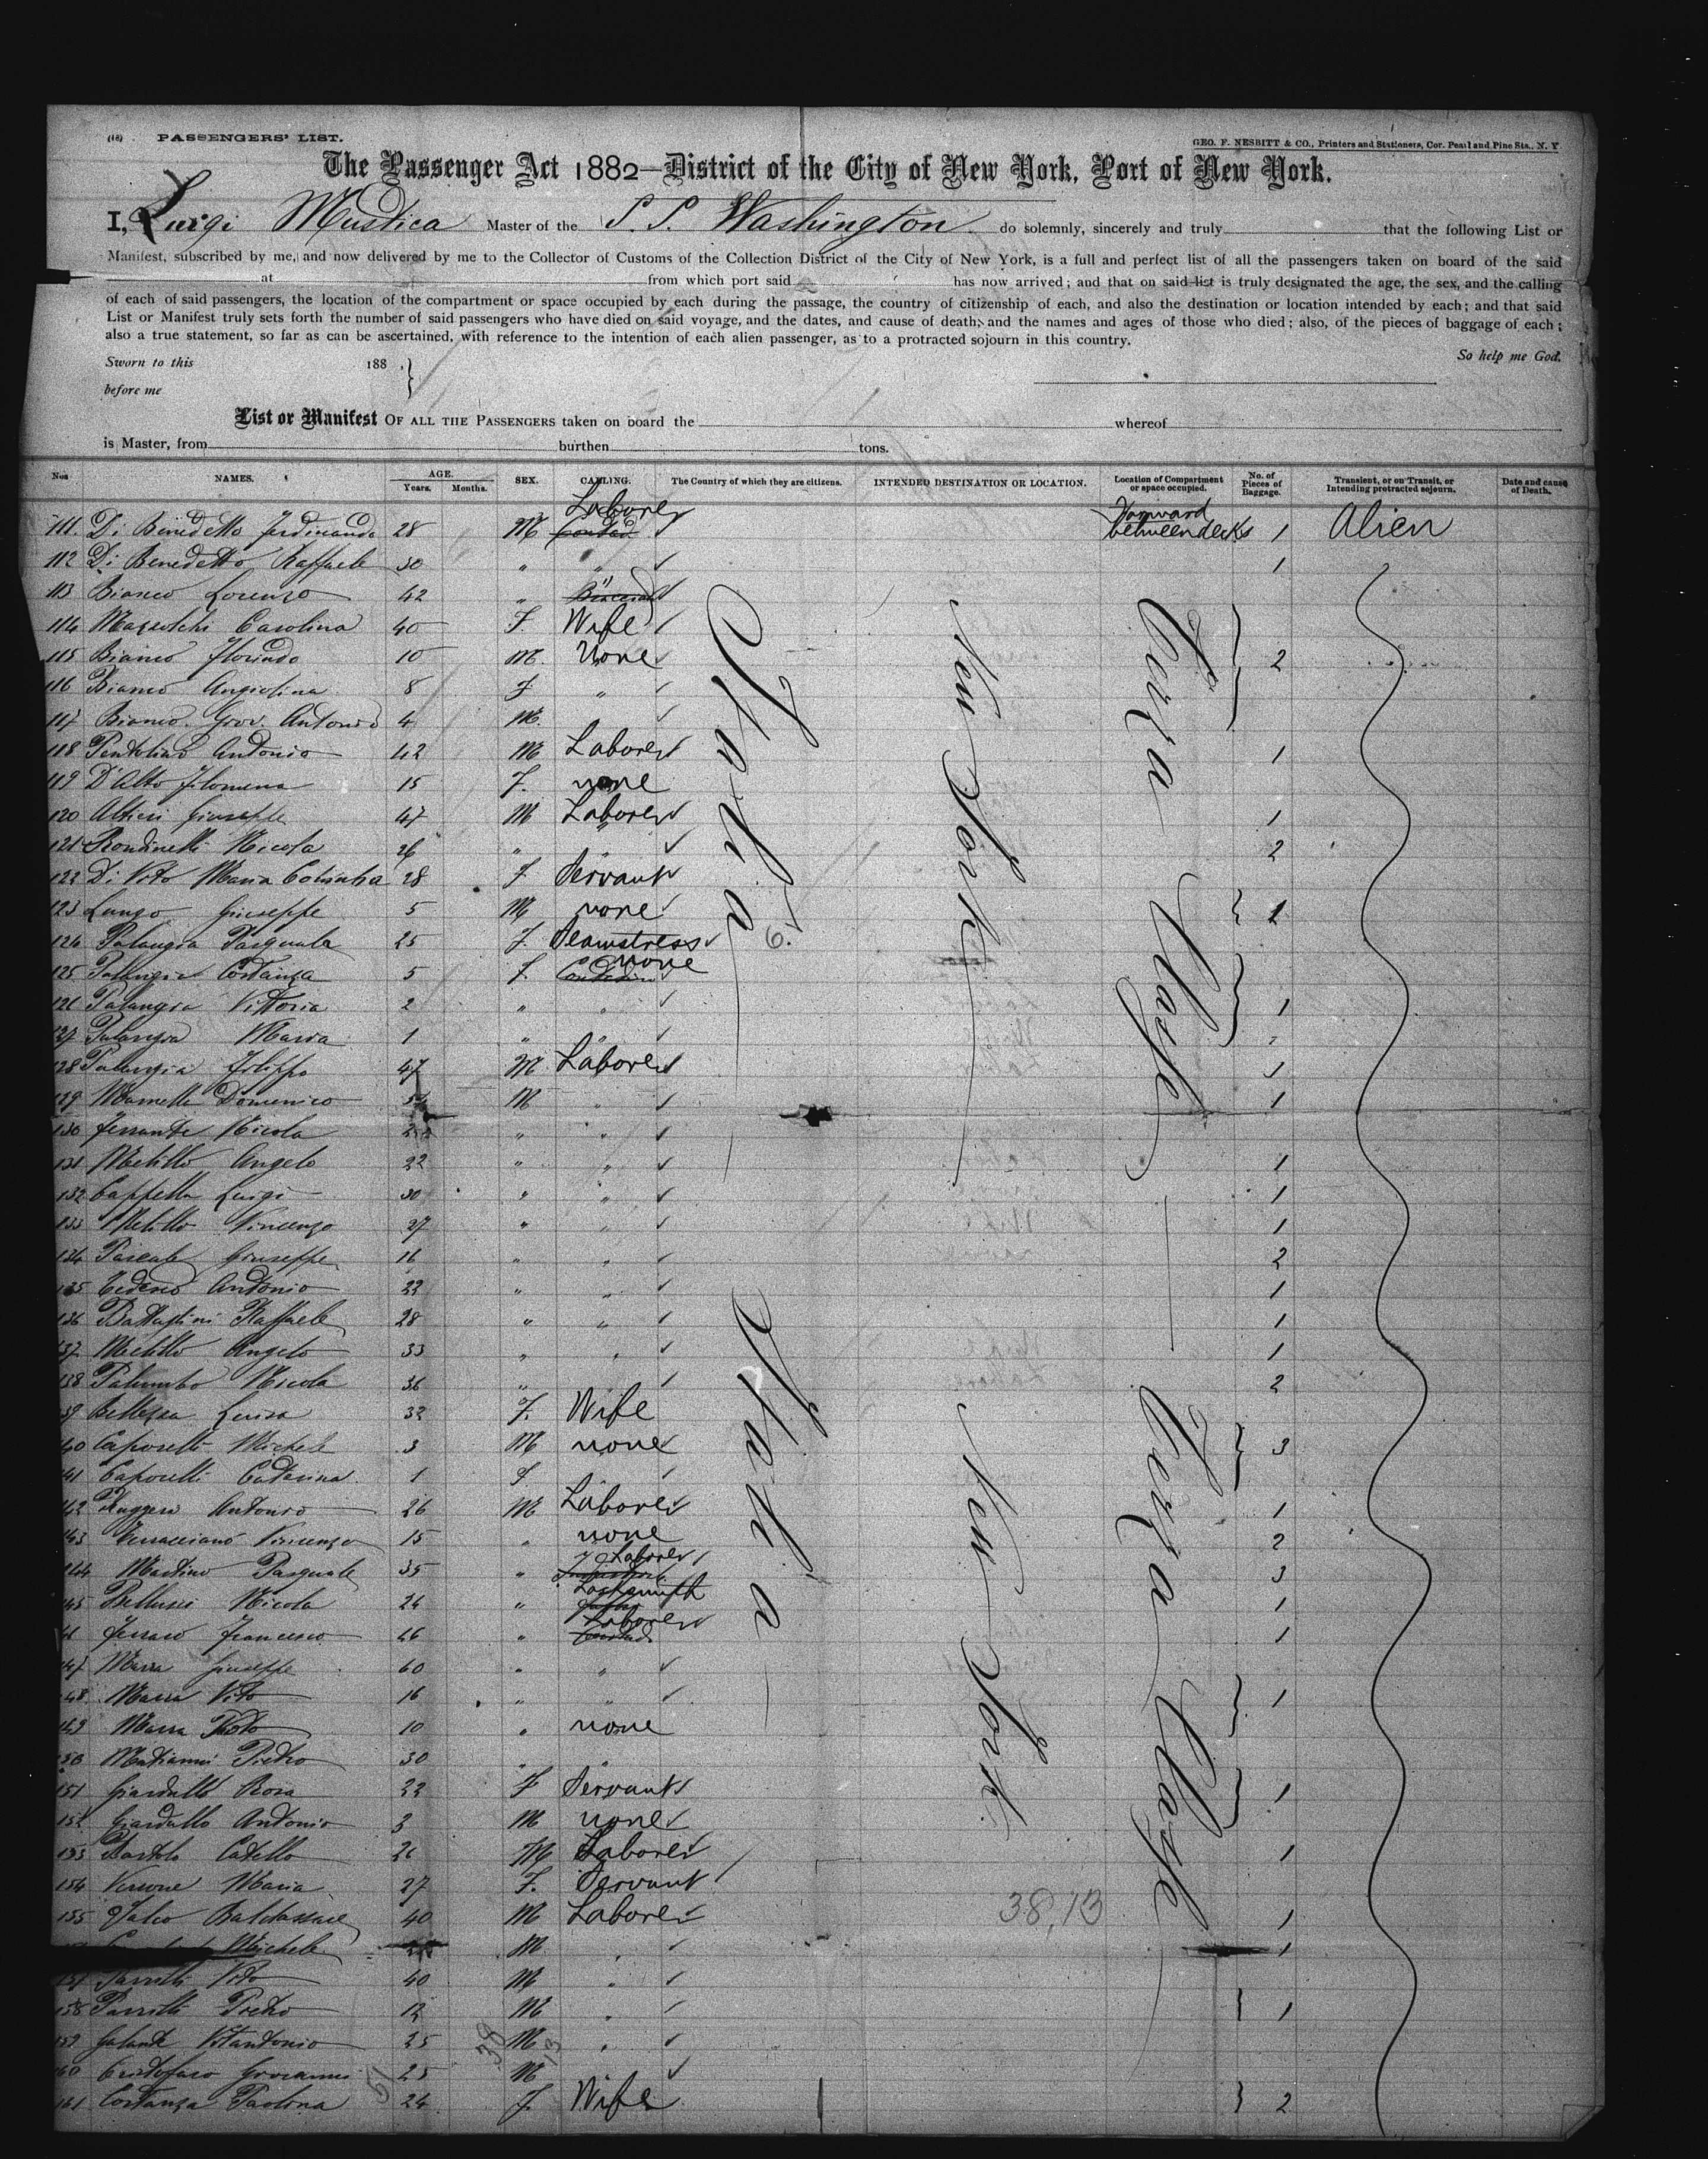 (18) PASSENGERS' LIST.
GEO. F. NESBITT & CO., Printers and Stationers, Cor. Pearl and Pine Sts., N. Y.
The Passenger Act 1882—District of the City of New York, Port of New York.
I, Luigi Mustica Master of the S. S. Washington do solemnly, sincerely and truly that the following List or
Manifest, subscribed by me, and now delivered by me to the Collector of Customs of the Collection District of the City of New York, is a full and perfect list of all the passengers taken on board of the said
at from which port said has now arrived; and that on said list is truly designated the age, the sex, and the calling
of each of said passengers, the location of the compartment or space occupied by each during the passage, the country of citizenship of each, and also the destination or location intended by each; and that said
List or Manifest truly sets forth the number of said passengers who have died on said voyage, and the dates, and cause of death, and the names and ages of those who died; also, of the pieces of baggage of each;
also a true statement, so far as can be ascertained, with reference to the intention of each alien passenger, as to a protracted sojourn in this country.
So help me God.
Sworn to this 188 .
before me
List or Manifest OF ALL THE PASSENGERS taken on board the whereof
is Master, from burthen tons.
Nos NAMES. AGE. Years. Months. SEX. CALLING. The Country of which they are citizens. INTENDED DESTINATION OR LOCATION. Location of Compartment or space occupied. No. of Pieces of Baggage. Transient, or on Transit, or Intending protracted sojourn. Date and cause of Death.
111. Di Benedetto Ferdinando 28 M Laborer Forward betweendecks 1 Alien
112 Di Benedetto Raffaele 30 " " 1
113 Bianco Lorenzo 42 " "
114 Mazzotchi Carolina 40 F. Wife
115 Bianco Florindo 10 M. None 2
116 Bianco Angiolina 8 F "
117 Bianco Giov. Antonio 4 M.
118 Antonio 42 M Laborer 1
119 D'Alto Filomena 15 F. none
120 Altieri Giuseppe 47 M Laborer 1
121 Rondinelli Nicola 26 " " 2
122 Di Vito Maria 28 F Servant
123 Longo Giuseppe 5 M none 1
124 Palangia Pasquale 25 F. Seamstress
125 Palangia Costanza 5 F. none
126 Palangia Vittoria 2 " " 1
127 Palangia Maria 1 " "
128 Palangia Filippo 47 M Laborer 1
129 Domenico M " 1
130 Ferrante Nicola " "
131 Melillo Angelo 22 " " 1
132 Cappella Luigi 30 " " 1
133 Melillo Vincenzo 27 " " 1
134 Pascale Giuseppe 16 " " 2
135 Tedesco Antonio 22 " " 1
136 Battaglini Raffaele 28 " " 1
137 Melillo Angelo 33 " " 1
138 Palumbo Nicola 36 " " 2
139 Bellezza Luisa 32 F. Wife
140 Caporelli Michele 3 M none 3
141 Caporelli Caterina 1 F
142 Ruggero Antonio 26 M Laborer 1
143 Terracciano Vincenzo 15 " none 2
144 Martino Pasquale 35 " Laborer 3
145 Bellucci Nicola 24 " Locksmith 1
146 Ferraro Francesco 46 " Laborer 1
147 Massa Giuseppe 60 " "
148 Massa Vito 16 " " 1
149 Massa 10 " none
150 Pietro 30 " "
151 Giardullo Rosa 22 F Servant 1
152 Giardullo Antonio 3 M none
153 Bartolo Catello 26 M Laborer 1
154 Verrone Maria 27 F. Servant
155 Baldassare 40 M Laborer 1
Michele M. " 1
157 Parrilli Vito 40 M "
158 Parrilli Pietro 12 M " 1
159 Galante Vitantonio 25 M "
160 Cristofaro Giovanni 25 M
161 Costanza Paolina 24 F. Wife 2
Italia
Italia
New York
New York
Terza Classe
Terza Classe
6.
38,13
38
13
51